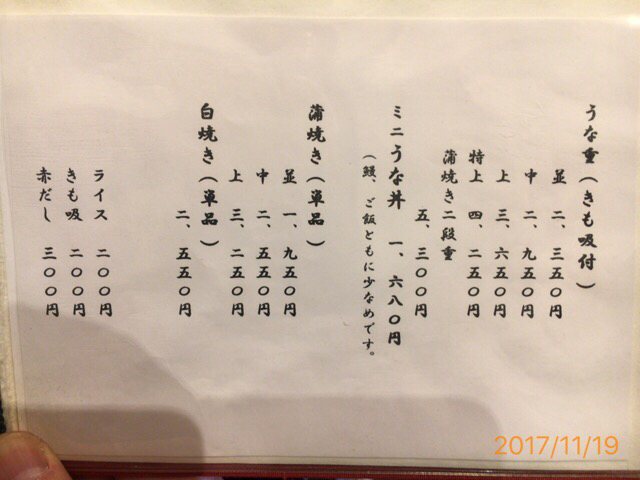 うな重(きも吸付)
並 二、三五〇円
中 二、九五〇円
上 三、六五〇円
特上 四、二五〇円
蒲焼き二段重
五、三〇〇円
ミニうな丼 一、六八〇円
(鰻、ご飯ともに少なめです。
蒲焼き(単品)
並 一、九五〇円
中 二、五五〇円
上 三、二五〇円
白焼き(単品)
二、五五〇円
ライス 二〇〇円
きも吸 二〇〇円
赤だし 三〇〇円
2017/11/19